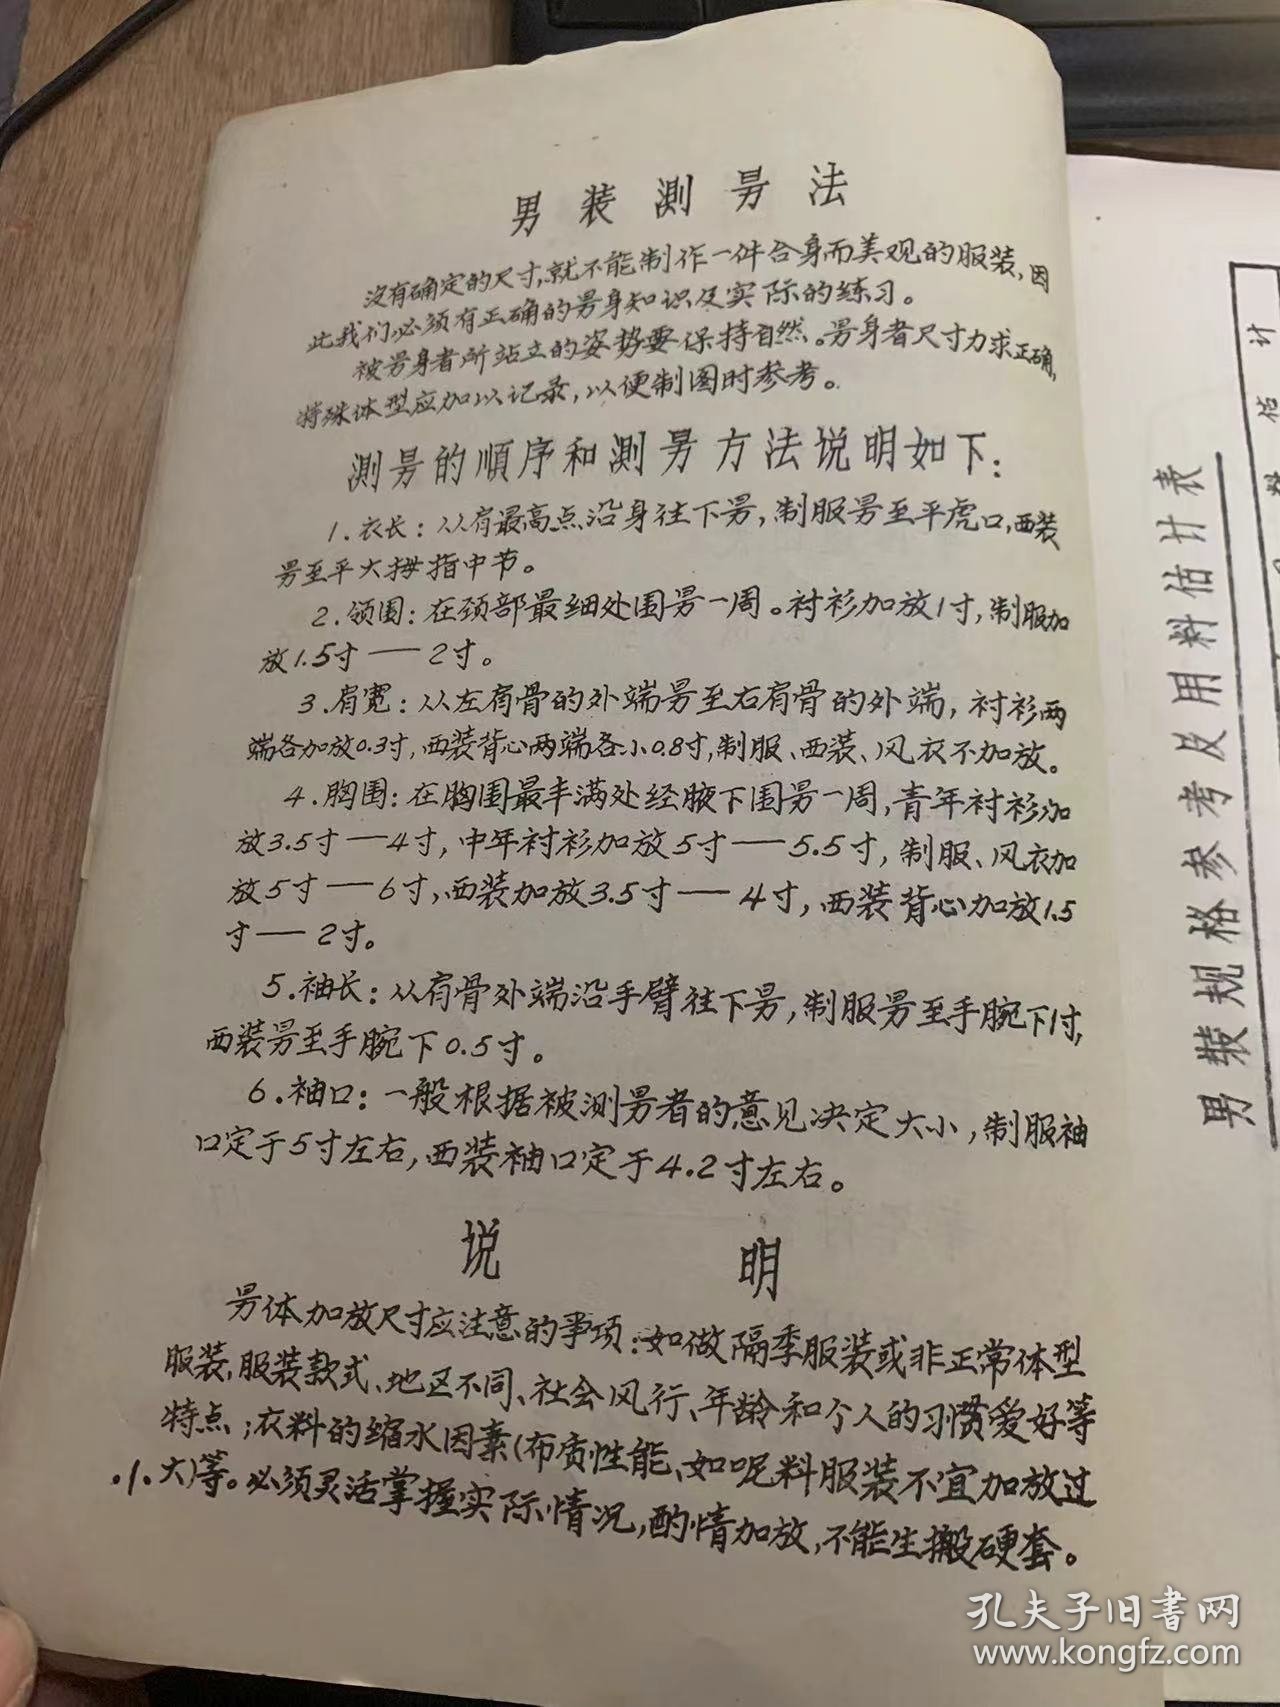 男装測量法
没有确定的尺寸,就不能制作一件合身而美观的服装,因
此我们必须有正确的量身知识及实际的练习。
被量身者所站立的姿势要保持自然。量身者尺寸力求正确,
特殊体型应加以记录,以便制图时参考。
測量的順序和測量方法说明如下:
1.衣长:从肩最高点沿身往下量,制服量至平虎口,西装
量至平大拇指中节。
2.领围:在颈部最细处围量一周。衬衫加放1寸,制服加
放1.5寸——2寸。
3.肩宽:从左肩骨的外端量至右肩骨的外端,衬衫两
端各加放0.3寸,西装背心两端各小0.8寸,制服、西装、风衣不加放。
4.胸围:在胸围最丰满处经腋下围量一周,青年衬衫加
放3.5寸——4寸,中年衬衫加放5寸——5.5寸,制服、风衣加
放5寸——6寸,西装加放3.5寸——4寸,西装背心加放1.5
寸——2寸。
5.袖长:从肩骨外端沿手臂往下量,制服量至手腕下1寸,
西装量至手腕下0.5寸。
6.袖口:一般根据被测量者的意见决定大小,制服袖
口定于5寸左右,西装袖口定于4.2寸左右。
说明
量体加放尺寸应注意的事项:如做隔季服装或非正常体型
服装,服装款式、地区不同、社会风行、年龄和个人的习惯爱好等
特点;衣料的缩水因素(布质性能、如呢料服装不宜加放过
大)等。必须灵活掌握实际情况,酌情加放,不能生搬硬套。
.1.
男装规格参考及用料估计表
估计
孔夫子旧书网
www.kongfz.com